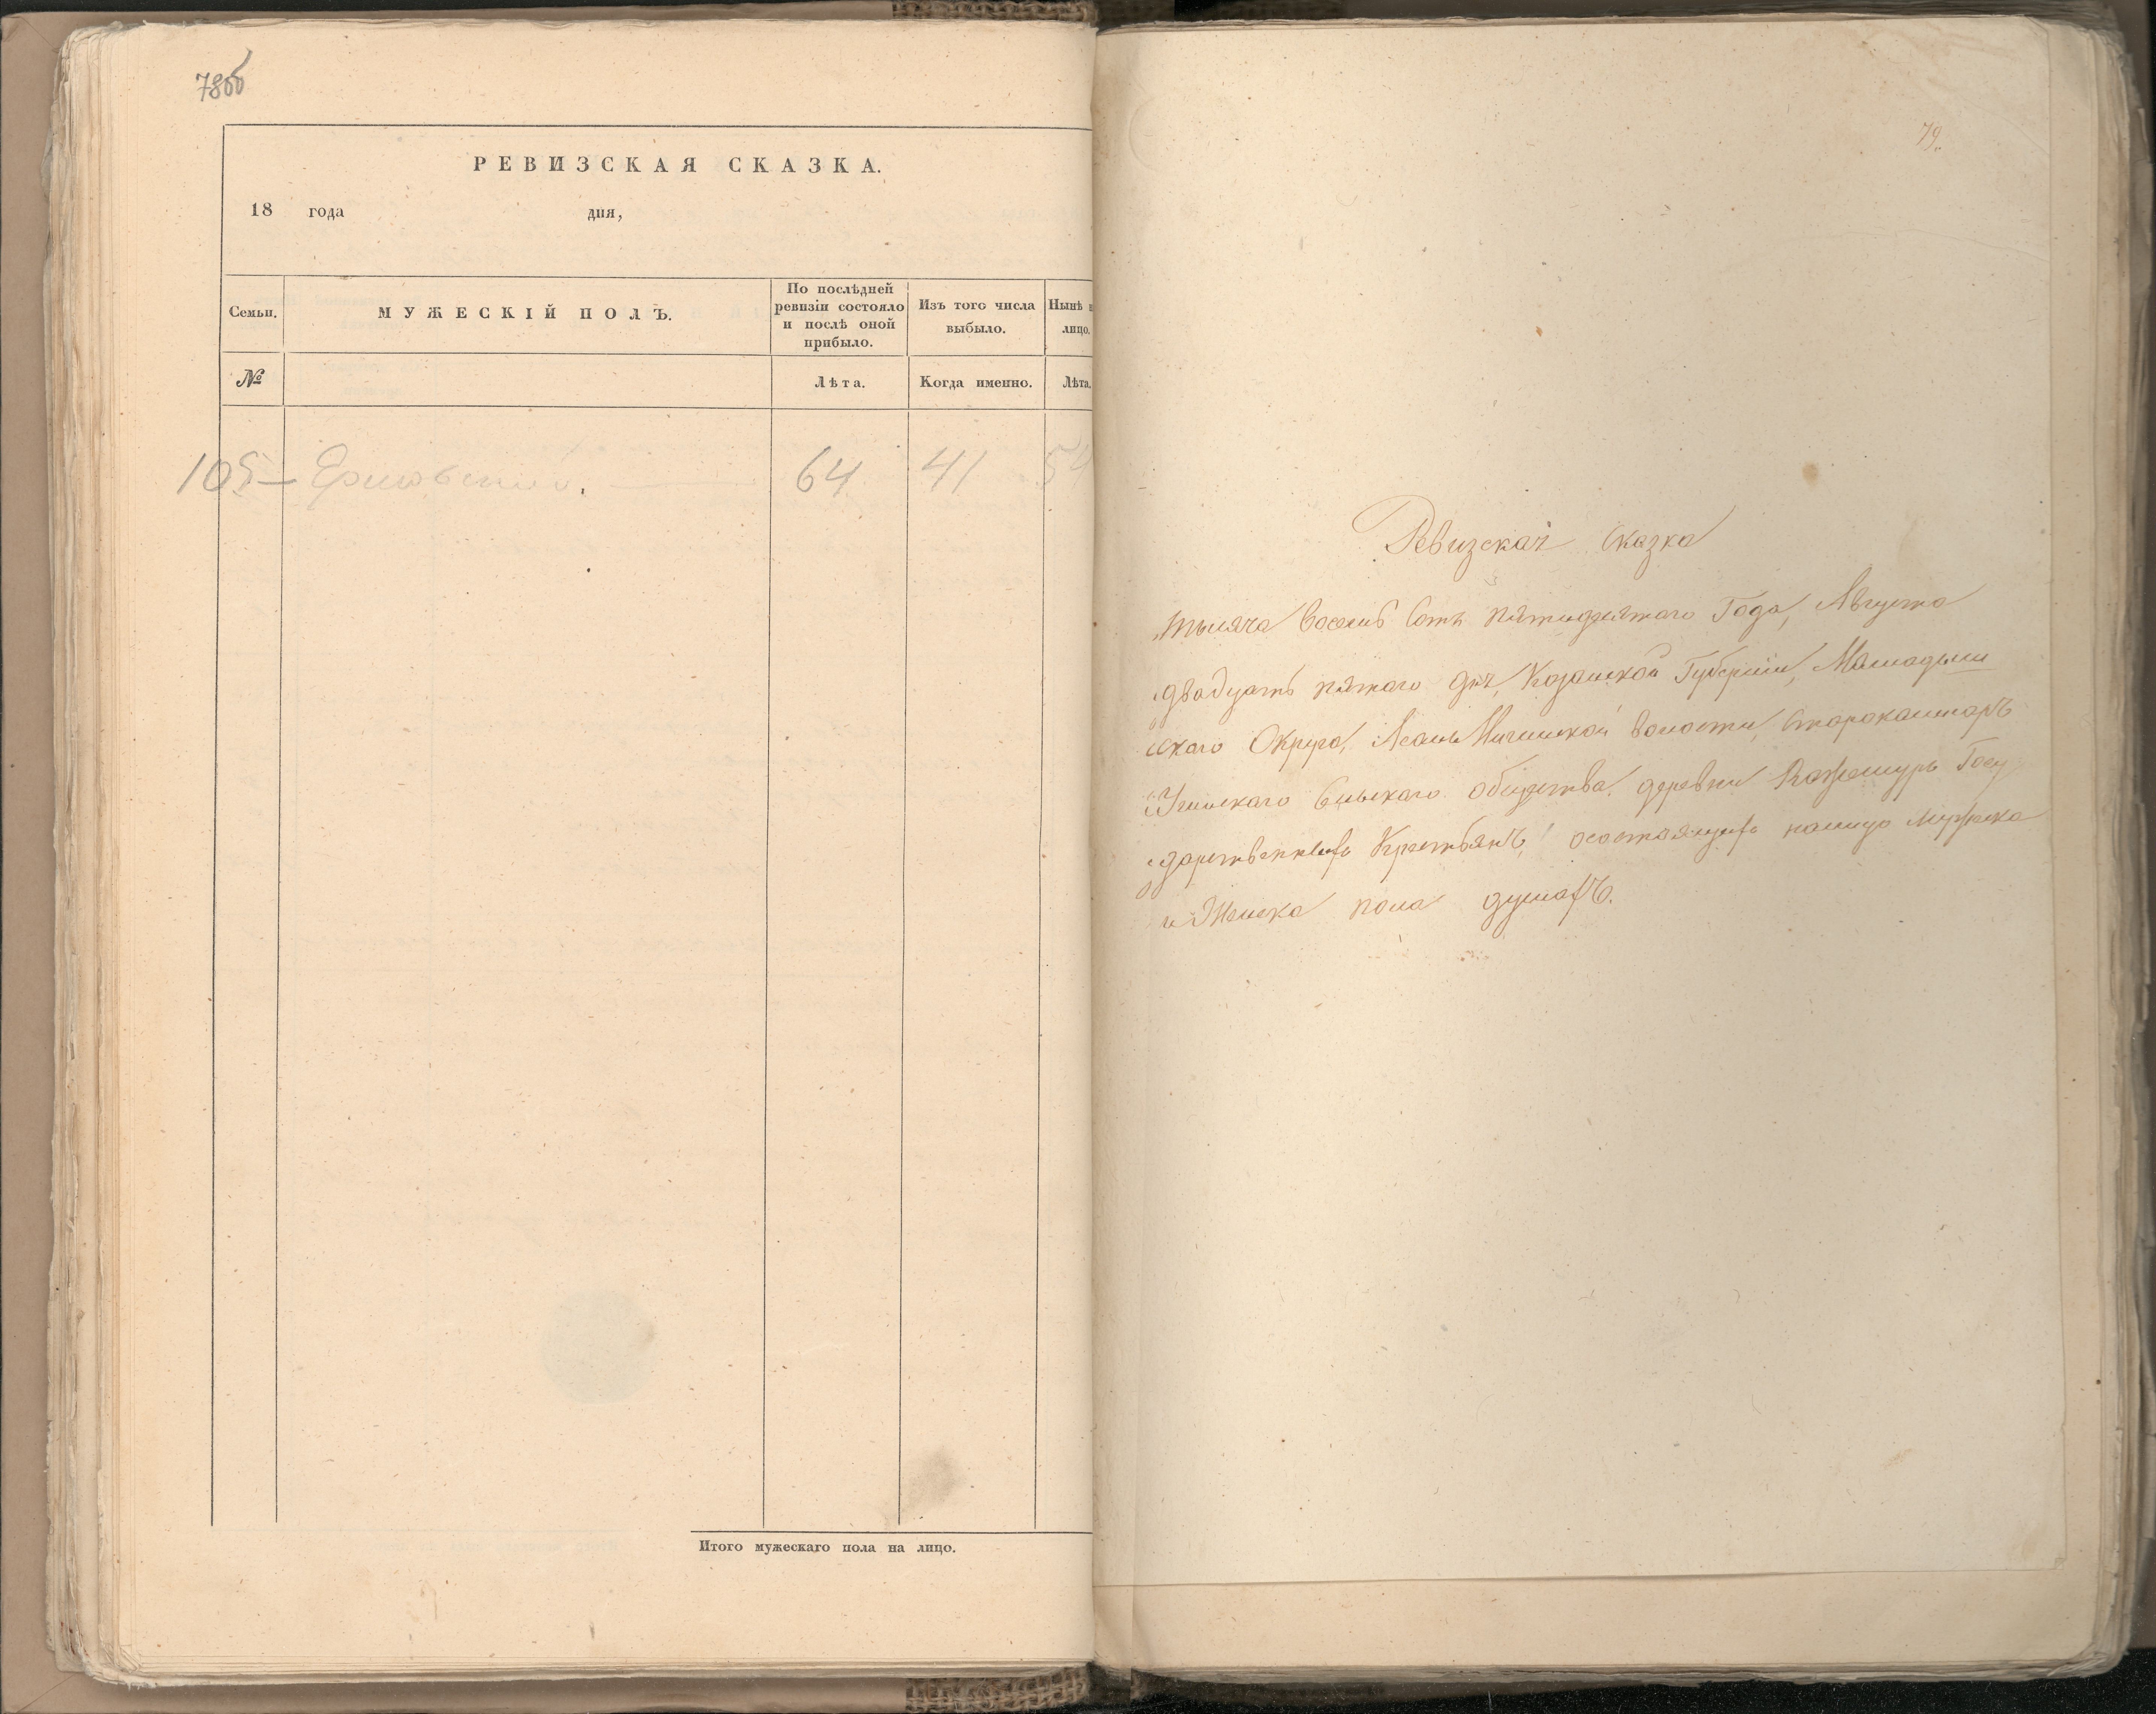 78об
РЕВИЗСКАЯ СКАЗКА.
18 года дня,
Семьи.
МУЖЕСКІЙ ПОЛЪ.
По послѣдней
ревизіи состояло
и послѣ оной
прибыло.
Изъ того числа
выбыло.
Нынѣ н
лицо.
№
Лѣта.
Когда именно.
Лѣта.
105 64 41 54
Итого мужескаго пола на лицо.
79.
Ревизская Сказка
тысяча восемь Сотъ пятидесятаго Года, Августа
двадцать пятаго дня, Казанской Губерніи, Мамадыш
скаго Округа, Волости,
Сельскаго общества деревни Госу
дарственныхъ Крестьянъ, о состоящихъ налицо Мужеска
и Женска пола душахъ.